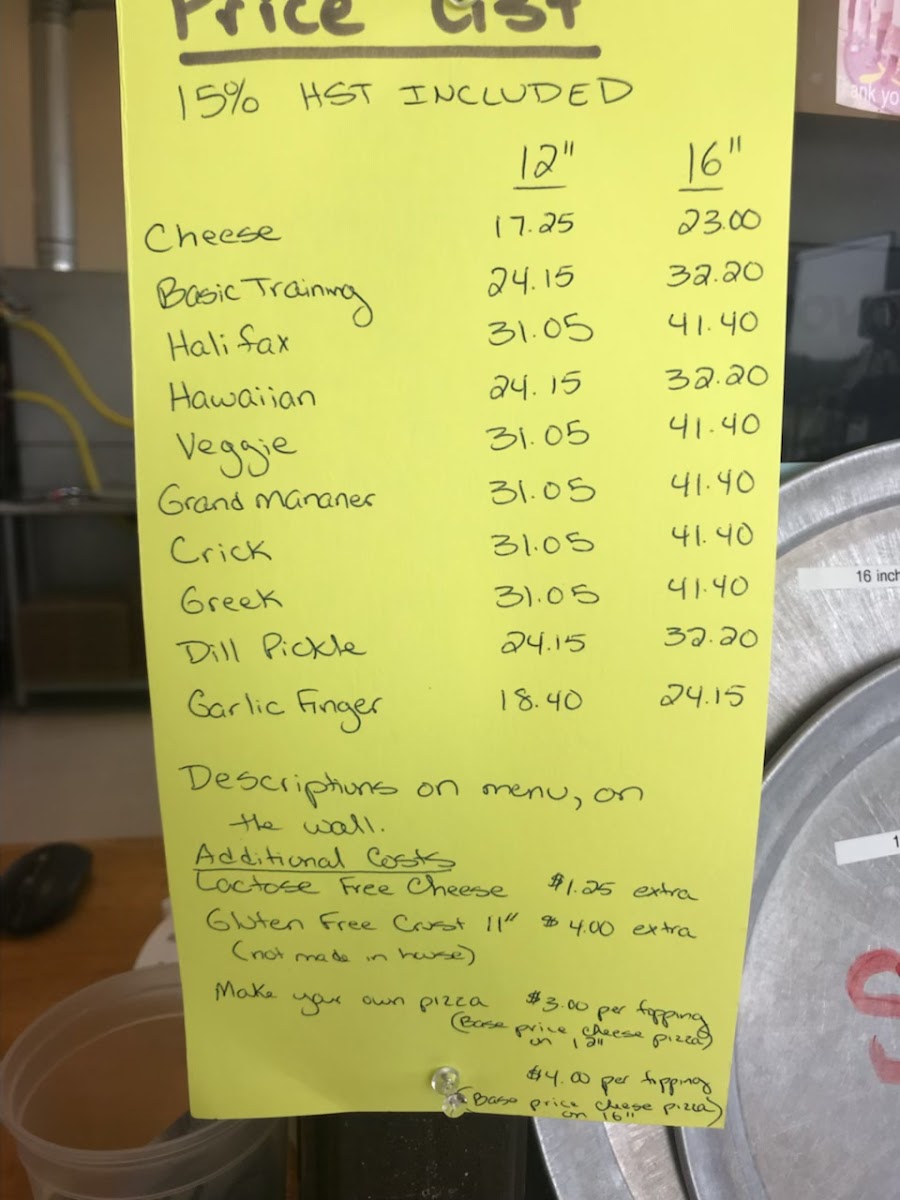 Price List
15% HST INCLUDED
12" 16"
Cheese 17.25 23.00
Basic Training 24.15 32.20
Halifax 31.05 41.40
Hawaiian 24.15 32.20
Veggie 31.05 41.40
Grand Mananer 31.05 41.40
Crick 31.05 41.40
Greek 31.05 41.40
Dill Pickle 24.15 32.20
Garlic Finger 18.40 24.15
Descriptions on menu, on
the wall.
Additional Costs
Lactose Free Cheese $1.25 extra
Gluten Free Crust 11" $4.00 extra
(not made in house)
Make your own pizza $3.00 per topping
(Base price cheese pizza)
on 12"
$4.00 per topping
(Base price cheese pizza)
on 16"
ank yo
16 inch
1